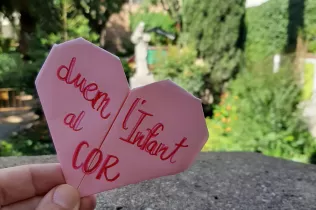 duem
al
COR
l'Infant